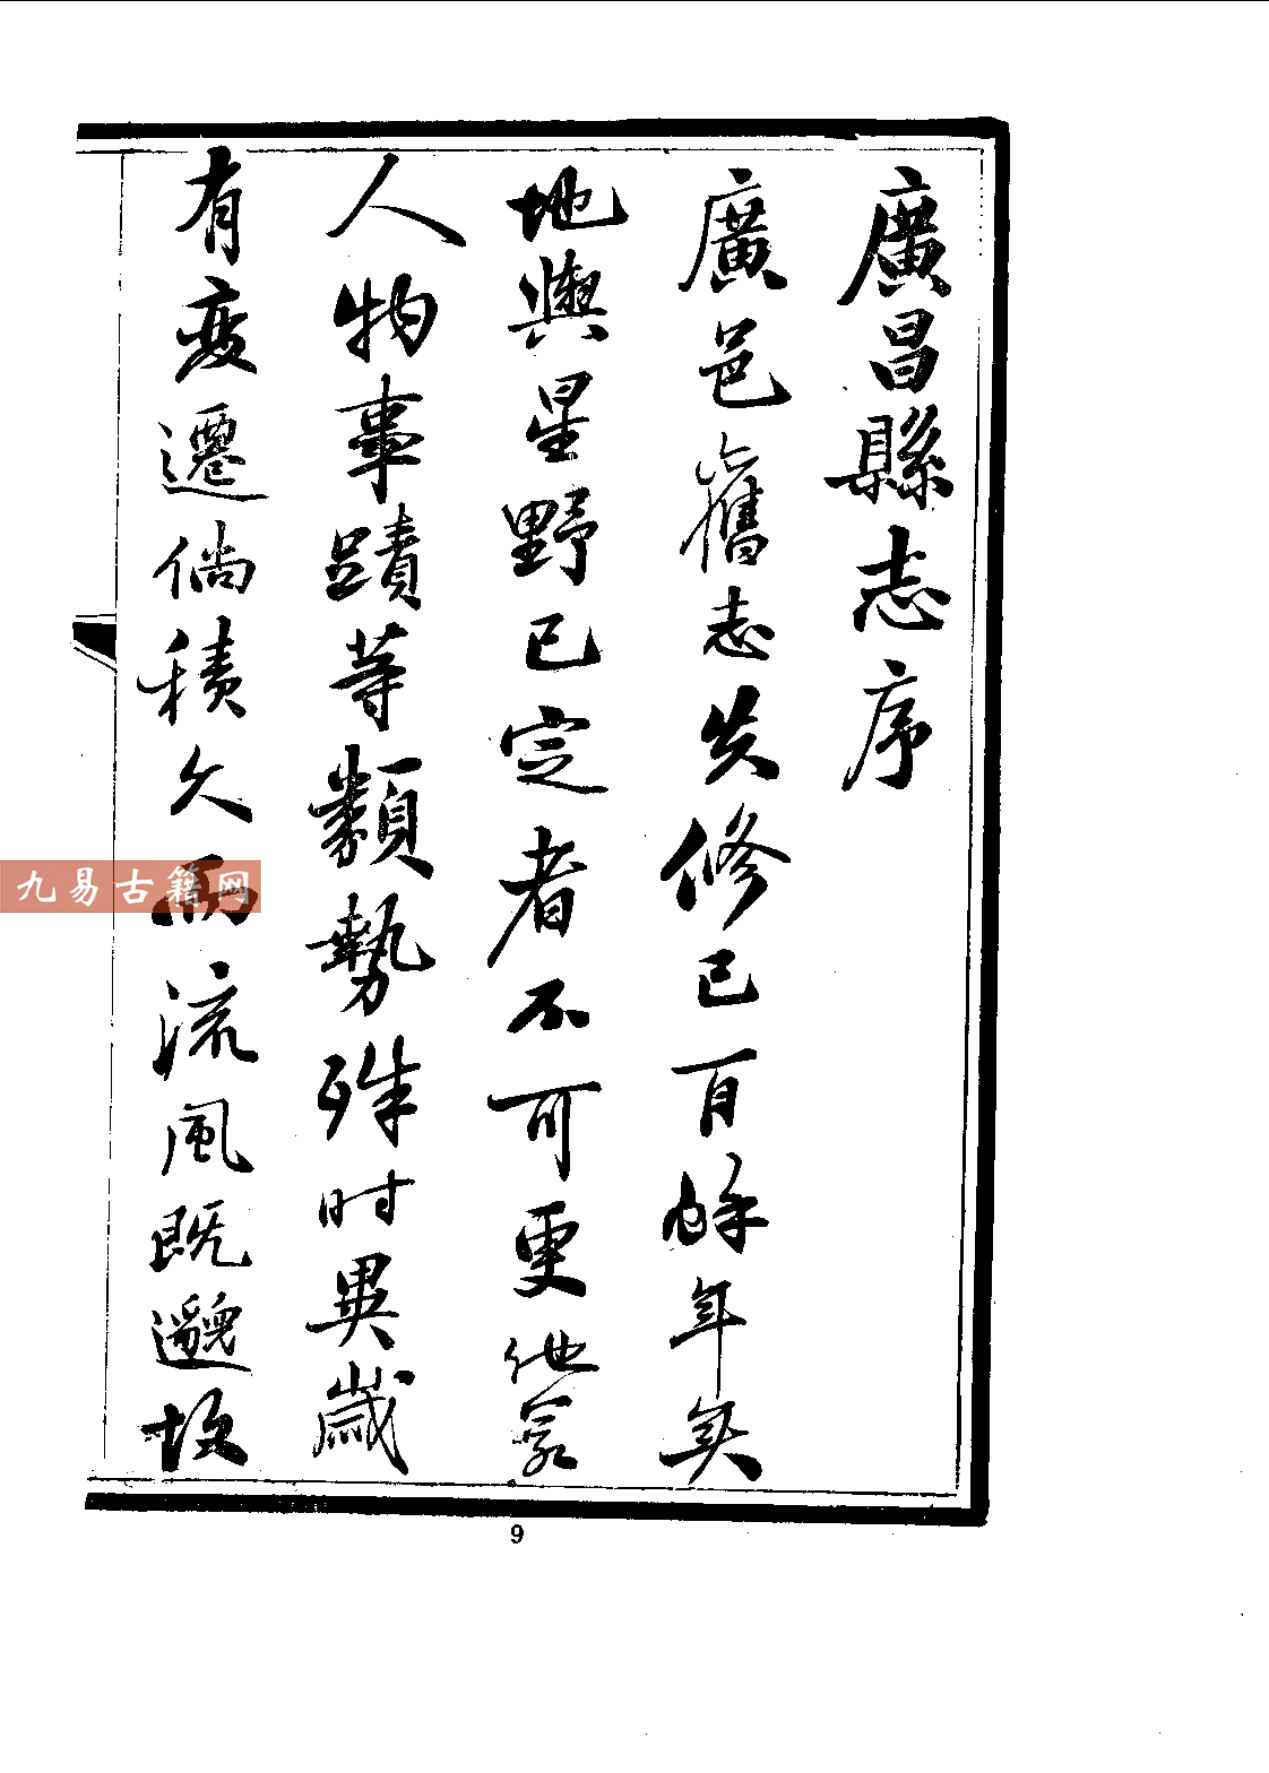 廣昌縣志序
廣邑舊志失修已百餘年矣
地輿星野已定者不可更他若
人物事蹟等類勢殊时異歲
有变遷倘積久而流風既邈故
九易古籍网
9